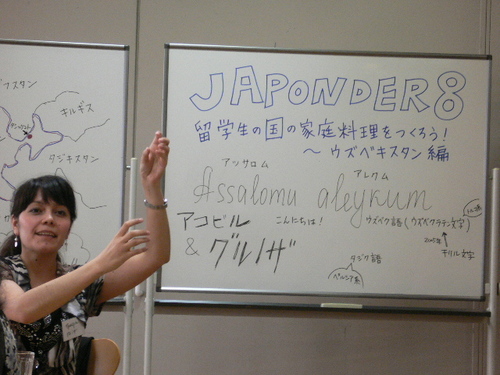 キルギス
タジキスタン
JAPONDER8
留学生の国の家庭料理をつくろう!
~ウズベキスタン編
アッサロム
アレクム
Assalomu aleykum
アコビル
こんにちは!
ウズベク語(ウズベクラテン文字)
& グルノザ
キリル文字
タジク語
ペルシア系